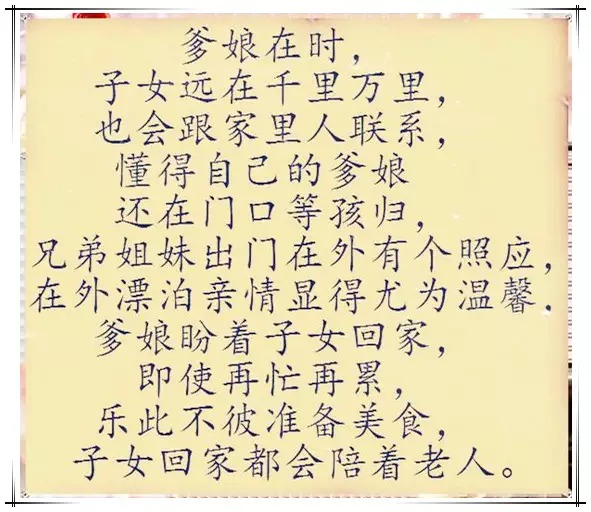 爹娘在时，
子女远在千里万里，
也会跟家里人联系，
懂得自己的爹娘
还在门口等孩归，
兄弟姐妹出门在外有个照应，
在外漂泊亲情显得尤为温馨．
爹娘盼着子女回家，
即使再忙再累，
乐此不彼准备美食，
子女回家都会陪着老人。